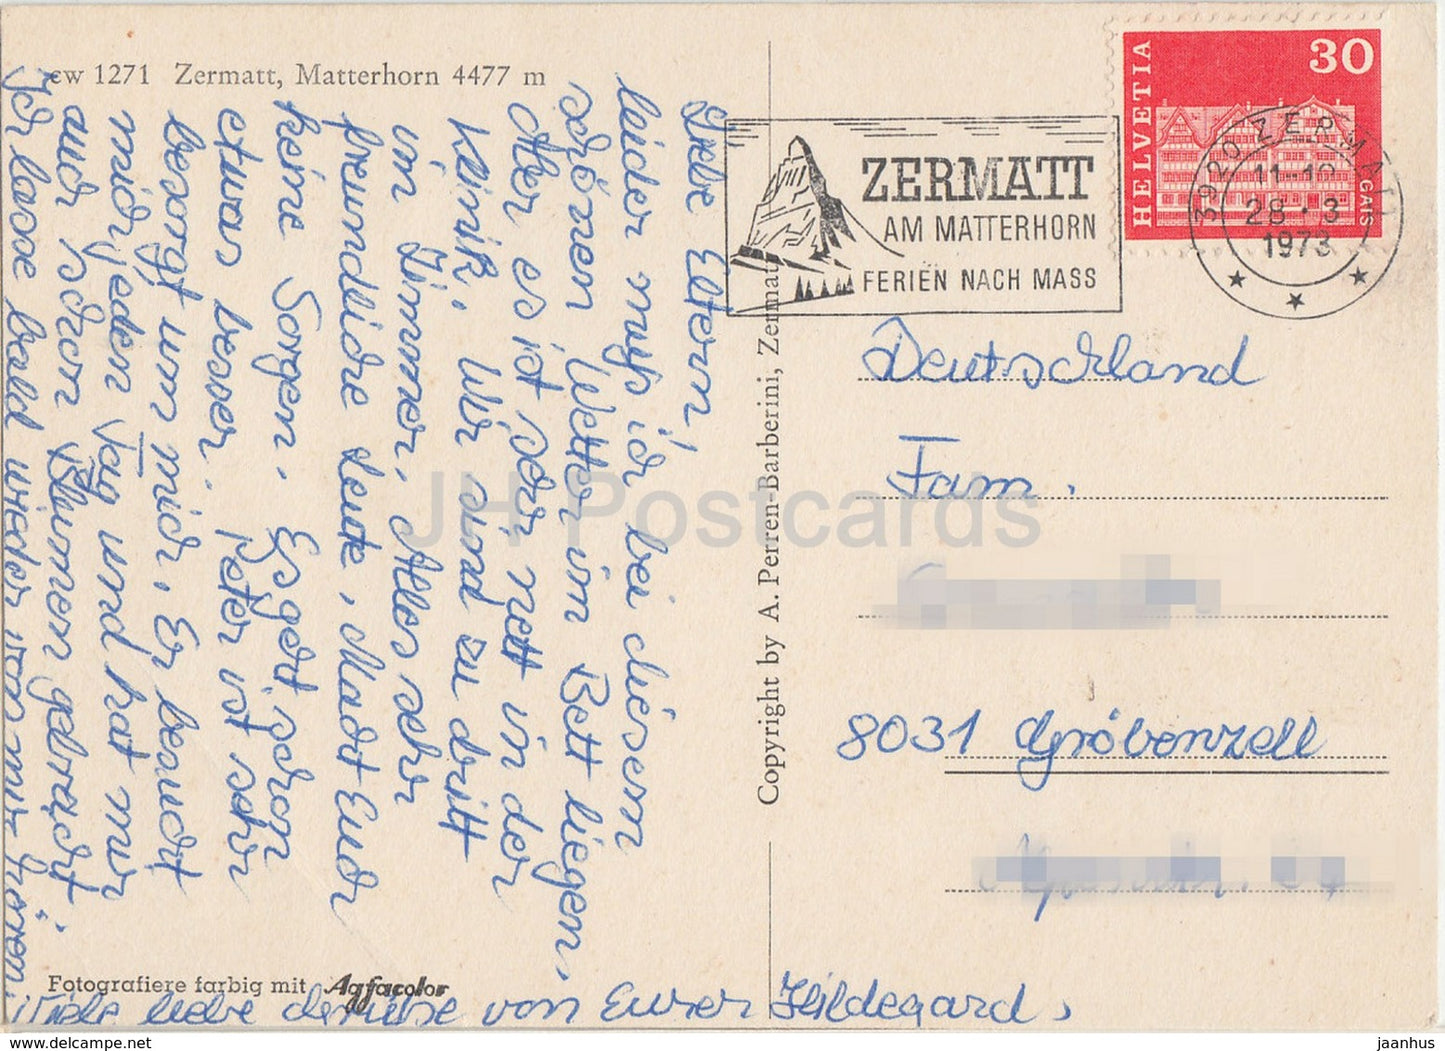 cw 1271 Zermatt, Matterhorn 4477 m
Liebe Eltern!
leider muß ich bei diesem
schönen Wetter im Bett liegen.
Aber es ist sehr nett in der
Klinik. Wir sind zu dritt
im Zimmer. Alles sehr
freundliche Leute. Macht Euch
keine Sorgen. Es geht schon
etwas besser. Peter ist sehr
besorgt um mich. Er besucht
mich jeden Tag und hat mir
auch schon Blumen gebracht.
Ich lasse bald wieder von mir hören.
Viele liebe Grüße von Eurer Hildegard.
Fotografiere farbig mit Agfacolor
Copyright by A. Perren-Barberini, Zermatt
ZERMATT
AM MATTERHORN
FERIEN NACH MASS
HELVETIA
30
GAIS
3920 ZERMATT
28.3
1973
Deutschland
Fam.
8031 Gröbenzell
JH Postcards
www.delcampe.net
jaanhus